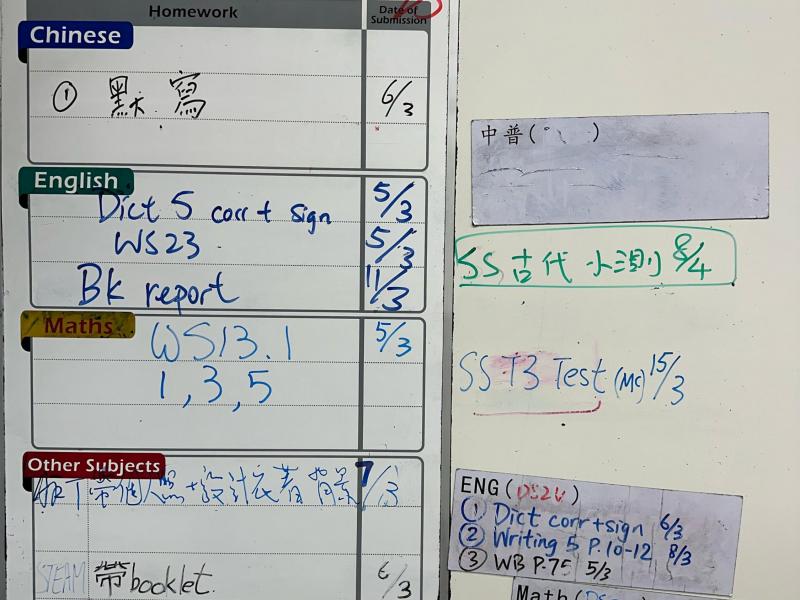 Homework
Date of
Submission
Chinese
① 默寫 6/3
English
Dict 5 corr + sign 5/3
WS23 5/3
Bk report 11/3
Maths
WS13.1 5/3
1, 3, 5
Other Subjects
帶個人照+設計衣着背景 7/3
STEAM 帶booklet. 6/3
中普( )
SS 古代 小測 8/4
SS T3 Test (MC) 15/3
ENG(DS2U)
① Dict corr+sign 6/3
② Writing 5 P.10-12 8/3
③ WB P.75 5/3
Math(DS